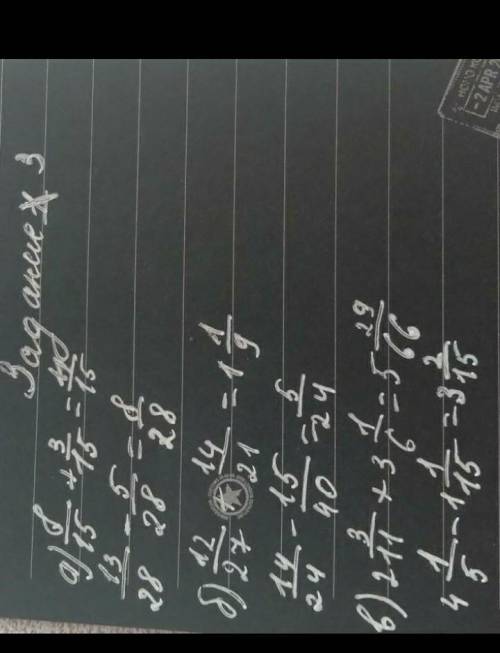 Задание 3
а) 8/15 + 3/15 = 11/15
13/28 - 5/28 = 8/28
б) 12/27 + 14/21 = 1 1/9
14/24 - 15/40 = 5/24
в) 2 3/11 + 3 1/6 = 5 29/66
4 1/5 - 1 1/15 = 3 2/15
- 2 APR 2